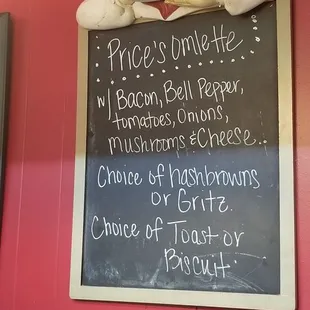 Price's Omlette
w/ Bacon, Bell Pepper,
tomatoes, Onions,
mushrooms & Cheese..
Choice of hashbrowns
or Gritz.
Choice of Toast or
Biscuit.